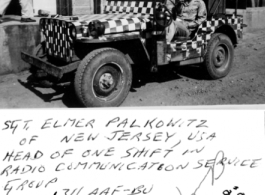 SGT. ELMER PALKOWITZ
OF NEW JERSEY, USA
HEAD OF ONE SHIFT IN
RADIO COMMUNICATION SERVICE
GROUP
1311 AAF-BU